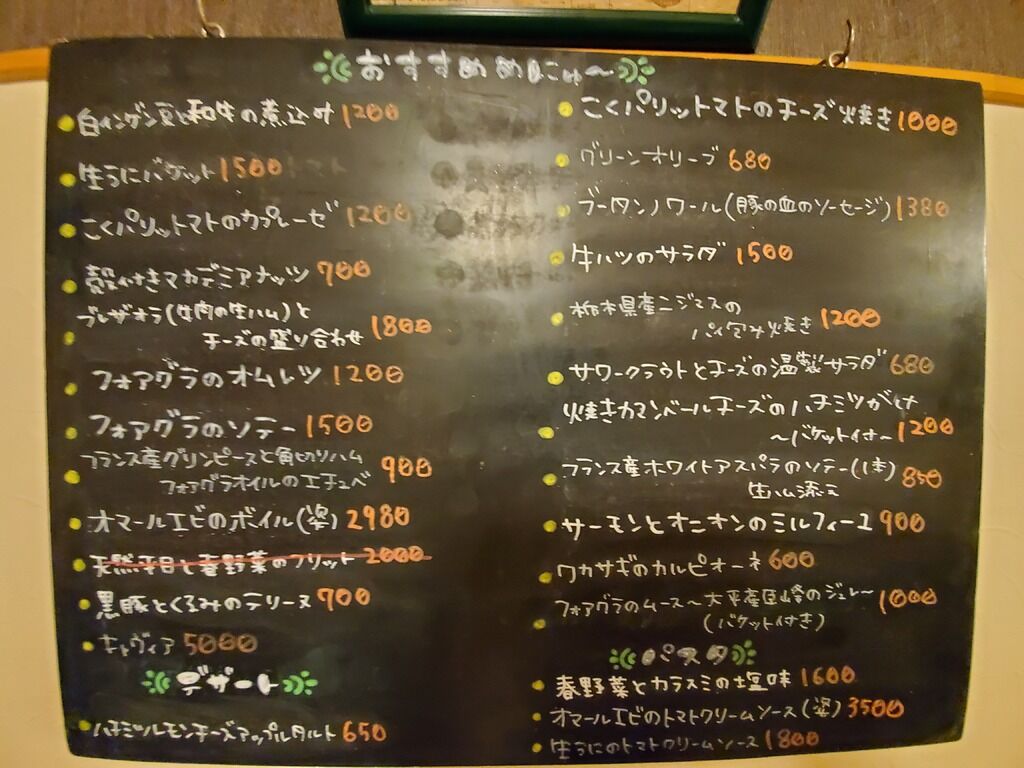 おすすめめにゅ〜
白インゲン豆と和牛の煮込み 1200
生うにバケット 1500
こくパリットマトのカプレーゼ 1200
殻付きマカデミアナッツ 700
ブレザオラ(牛肉の生ハム)と
チーズの盛り合わせ 1800
フォアグラのオムレツ 1200
フォアグラのソテー 1500
フランス産グリンピースと角切りハム
フォアグラオイルのエチュベ 900
オマールエビのボイル(姿) 2980
天然平目と春野菜のフリット 2000
黒豚とくるみのテリーヌ 700
キャヴィア 5000
デザート
ハチミツレモンチーズアップルタルト 650
こくパリットマトのチーズ焼き 1000
グリーンオリーブ 680
ブータンノワール(豚の血のソーセージ) 1380
牛ハツのサラダ 1500
栃木県産ニジマスの
パイ包み焼き 1200
サワークラウトとチーズの温製サラダ 680
焼きカマンベールチーズのハチミツがけ
〜バケット付〜 1200
フランス産ホワイトアスパラのソテー(1本) 850
生ハム添え
サーモンとオニオンのミルフィーユ 900
ワカサギのカルピオーネ 600
フォアグラのムース〜大平産巨峰のジュレ〜
(バケット付き) 1000
パスタ
春野菜とカラスミの塩味 1600
オマールエビのトマトクリームソース(姿) 3500
生うにのトマトクリームソース 1800